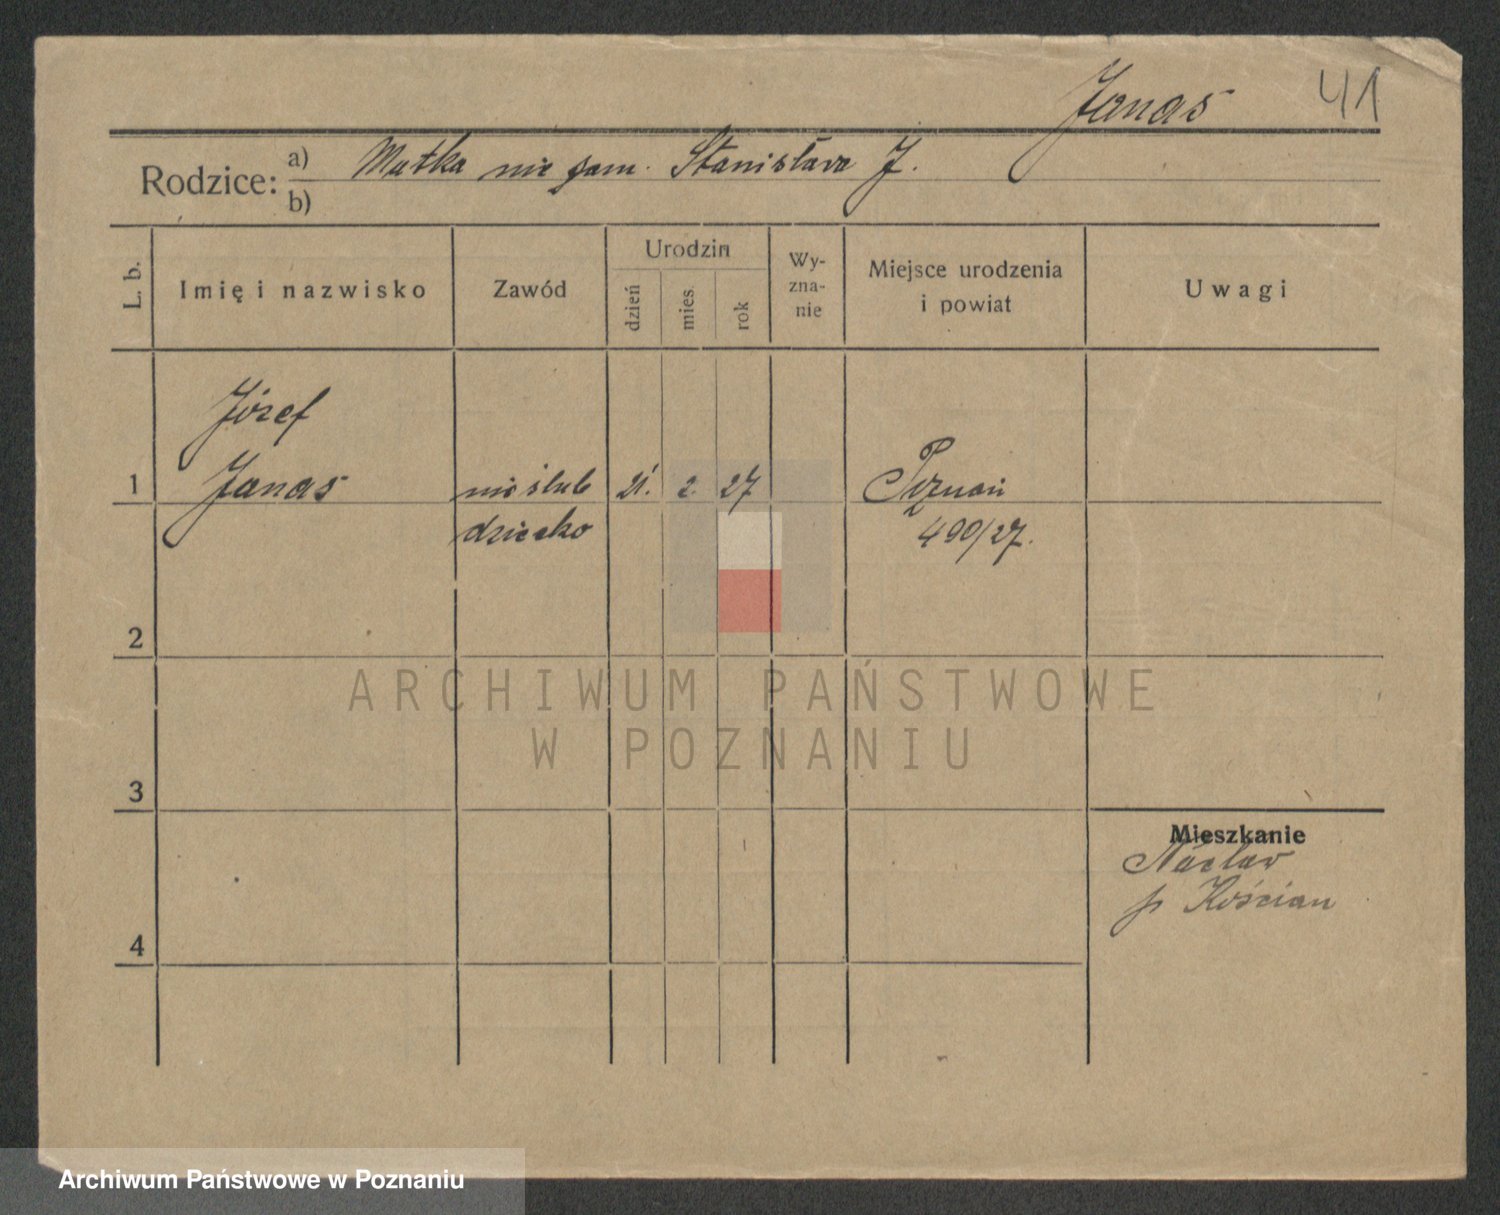 Janas
41
Rodzice:
a) Matka nie zam. Stanisława J.
b)
L. b.
Imię i nazwisko
Zawód
Urodzin
dzień
mies.
rok
Wy-
zna-
nie
Miejsce urodzenia
i powiat
Uwagi
Józef
1 Janas nie ślub 21. 2. 27 Poznań
dziecko 490/27.
2
3
4
Mieszkanie
Nacław
p. Kościan
ARCHIWUM PAŃSTWOWE
W POZNANIU
Archiwum Państwowe w Poznaniu